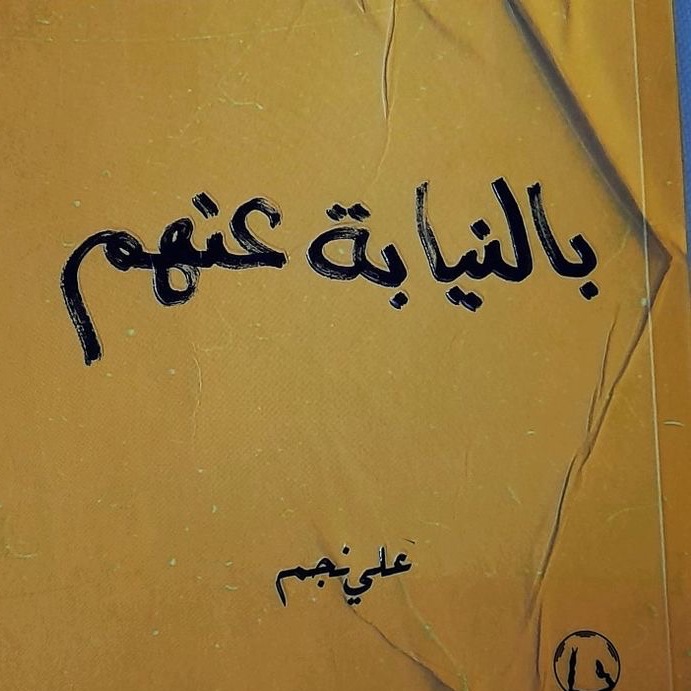 بالنيابة عنهم
علي نجم